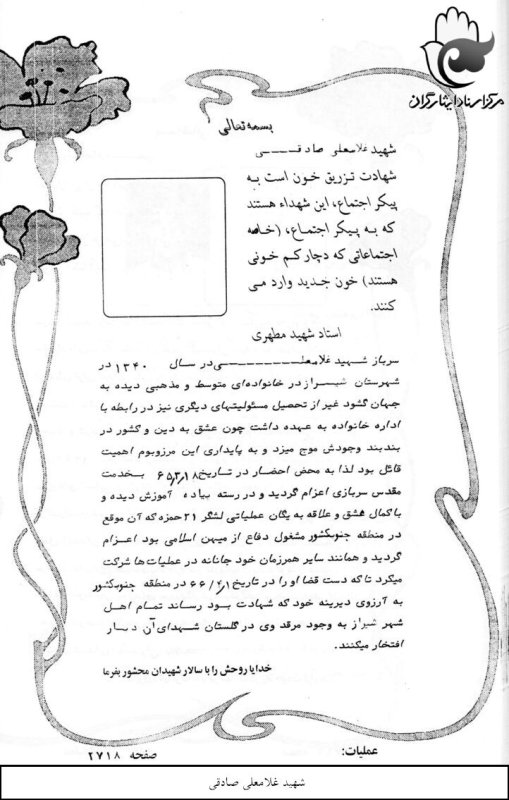 مرکز اسناد ایثارگران
بسمه تعالی
شهید غلامعلی صادقـــی
شهادت تزریق خون است به
پیکر اجتماع، این شهداء هستند
که به پیکر اجتماع، (خاصه
اجتماعاتی که دچار کم خونی
هستند) خون جدید وارد می
کنند.
استاد شهید مطهری
سرباز شهید غلامعلـــــــی در سال ۱۳۴۰ در
شهرستان شیـراز در خانواده‌ای متوسط و مذهبی دیده به
جهان گشود غیر از تحصیل مسئولیتهای دیگری نیز در رابطه با
اداره خانواده به عهده داشت چون عشق به دین و کشور در
بندبند وجودش موج میزد و به پایداری این مرزوبوم اهمیت
قائل بود لذا به محض احضار در تاریخ ۶۵٫۳٫۱۸ بخدمت
مقدس سربازی اعزام گردید و در رسته پیاده آموزش دیده و
با کمال عشق و علاقه به یگان عملیاتی لشگر ۲۱ حمزه که آن موقع
در منطقه جنوبکشور مشغول دفاع از میهن اسلامی بود اعزام
گردید و همانند سایر همرزمان خود جانانه در عملیات ها شرکت
میکرد تا که دست قضا او را در تاریخ ۶۶/۴٫۱ در منطقه جنوبکشور
به آرزوی دیرینه خود که شهادت بود رساند تمام اهل
شهر شیراز به وجود مرقد وی در گلستان شهدای آن دیار
افتخار میکنند.
خدایا روحش را با سالار شهیدان محشور بفرما
عملیات:
صفحه ۲۷۱۸
شهید غلامعلی صادقی